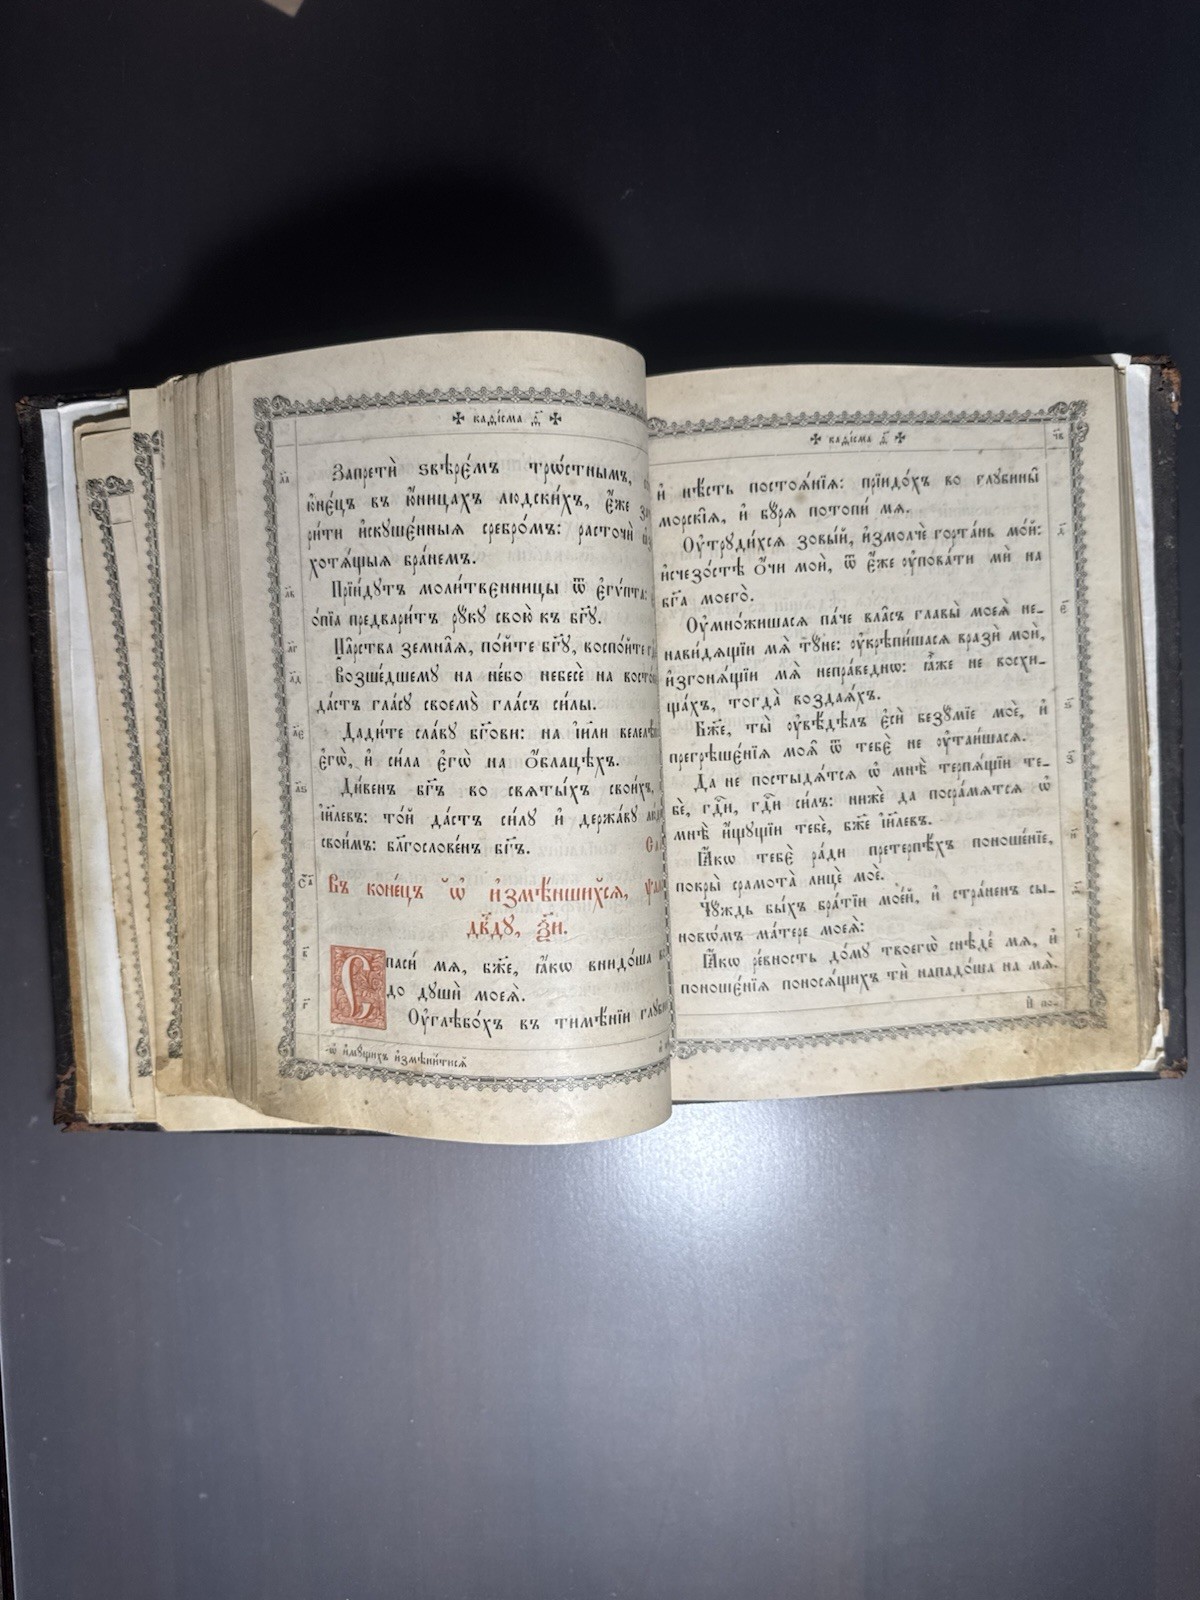 ✠ каѳі́сма ѳ҃ ✠
Запретѝ ѕвѣрє́мъ трѡ́стнымъ,
ю҆нє́цъ въ ю҆́ницахъ людски́хъ, є҆́же
ри́ти и҆скꙋшє́нныѧ сребро́мъ: расточѝ
хотѧ́щыѧ бра́немъ.
л҃в
Прїи́дꙋтъ моли́твенницы ѿ є҆гѵ́пта:
ѳїо́пїа предвари́тъ рꙋ́кꙋ свою̀ къ бг҃ꙋ.
л҃г
Ца̑рства земна̑ѧ, по́йте бг҃ꙋ, воспо́йте
л҃д
Возше́дшемꙋ на не́бо небесѐ на
да́стъ гла́сꙋ своемꙋ̀ гла́съ си́лы.
л҃є
Дади́те сла́вꙋ бг҃ови: на і҆и҃ли
є҆гѡ̀, и҆ си́ла є҆гѡ̀ на ѻ҆́блацѣхъ.
л҃ѕ
Ди́венъ бг҃ъ во свѧты́хъ свои́хъ,
і҆и҃левъ: то́й да́стъ си́лꙋ и҆ держа́вꙋ
свои̑мъ: благослове́нъ бг҃ъ.
Въ коне́цъ, ѡ҆ и҆змѣ́ншихсѧ,
дв҃дꙋ, ѯ҃и.
в҃
Спаси́ мѧ, бж҃е, ꙗ҆́кѡ внидо́ша
до дꙋшѝ моеѧ̀.
г҃
Оу҆глѣбо́хъ въ тимѣ́нїи
ѡ҆ и҆мꙋ́щихъ и҆змѣни́тисѧ
✠ каѳі́сма ѳ҃ ✠
и҆ нѣ́сть постоѧ́нїѧ: прїидо́хъ во глꙋбины̑
морскі̑ѧ, и҆ бꙋ́рѧ потопи́ мѧ.
д҃
Оу҆трꙋди́хсѧ зовы́й, и҆змолчѐ горта́нь мо́й:
и҆счезо́стѣ ѻ҆́чи моѝ, ѿ є҆́же ᲂу҆пова́ти мѝ на
бг҃а моего̀.
є҃
Оу҆мно́жишасѧ па́че вла̑съ главы̀ моеѧ̀ не-
нави́дѧщїи мѧ̀ тꙋ́не: ᲂу҆крѣпи́шасѧ вразѝ моѝ,
и҆згонѧ́щїи мѧ̀ непра́веднѡ: ꙗ҆̀же не восхи-
ща́хъ, тогда̀ воздаѧ́хъ.
ѕ҃
Бж҃е, ты̀ ᲂу҆вѣ́дѣлъ є҆сѝ безꙋ́мїе моѐ, и҆
прегрѣшє́нїѧ моѧ̑ ѿ тебѐ не ᲂу҆таи́шасѧ.
з҃
Да не постыдѧ́тсѧ ѡ҆ мнѣ̀ терпѧ́щїи те-
бѐ, гд҃и, гд҃и си́лъ: нижѐ да посра́мѧтсѧ ѡ҆
мнѣ̀ и҆́щꙋщїи тебѐ, бж҃е і҆и҃левъ.
и҃
Ꙗ҆́кѡ тебє̀ ра́ди претерпѣ́хъ поноше́нїе,
покры̀ срамота̀ лицѐ моѐ.
ѳ҃
Чꙋ́ждь бы́хъ бра́тїи мое́й, и҆ стра́ненъ сы-
новѡ́мъ ма́тере моеѧ̀:
і҃
Ꙗ҆́кѡ ре́вность до́мꙋ твоегѡ̀ снѣде́ мѧ, и҆
поношє́нїѧ поносѧ́щихъ тѝ нападо́ша на мѧ̀.
И҆ по-